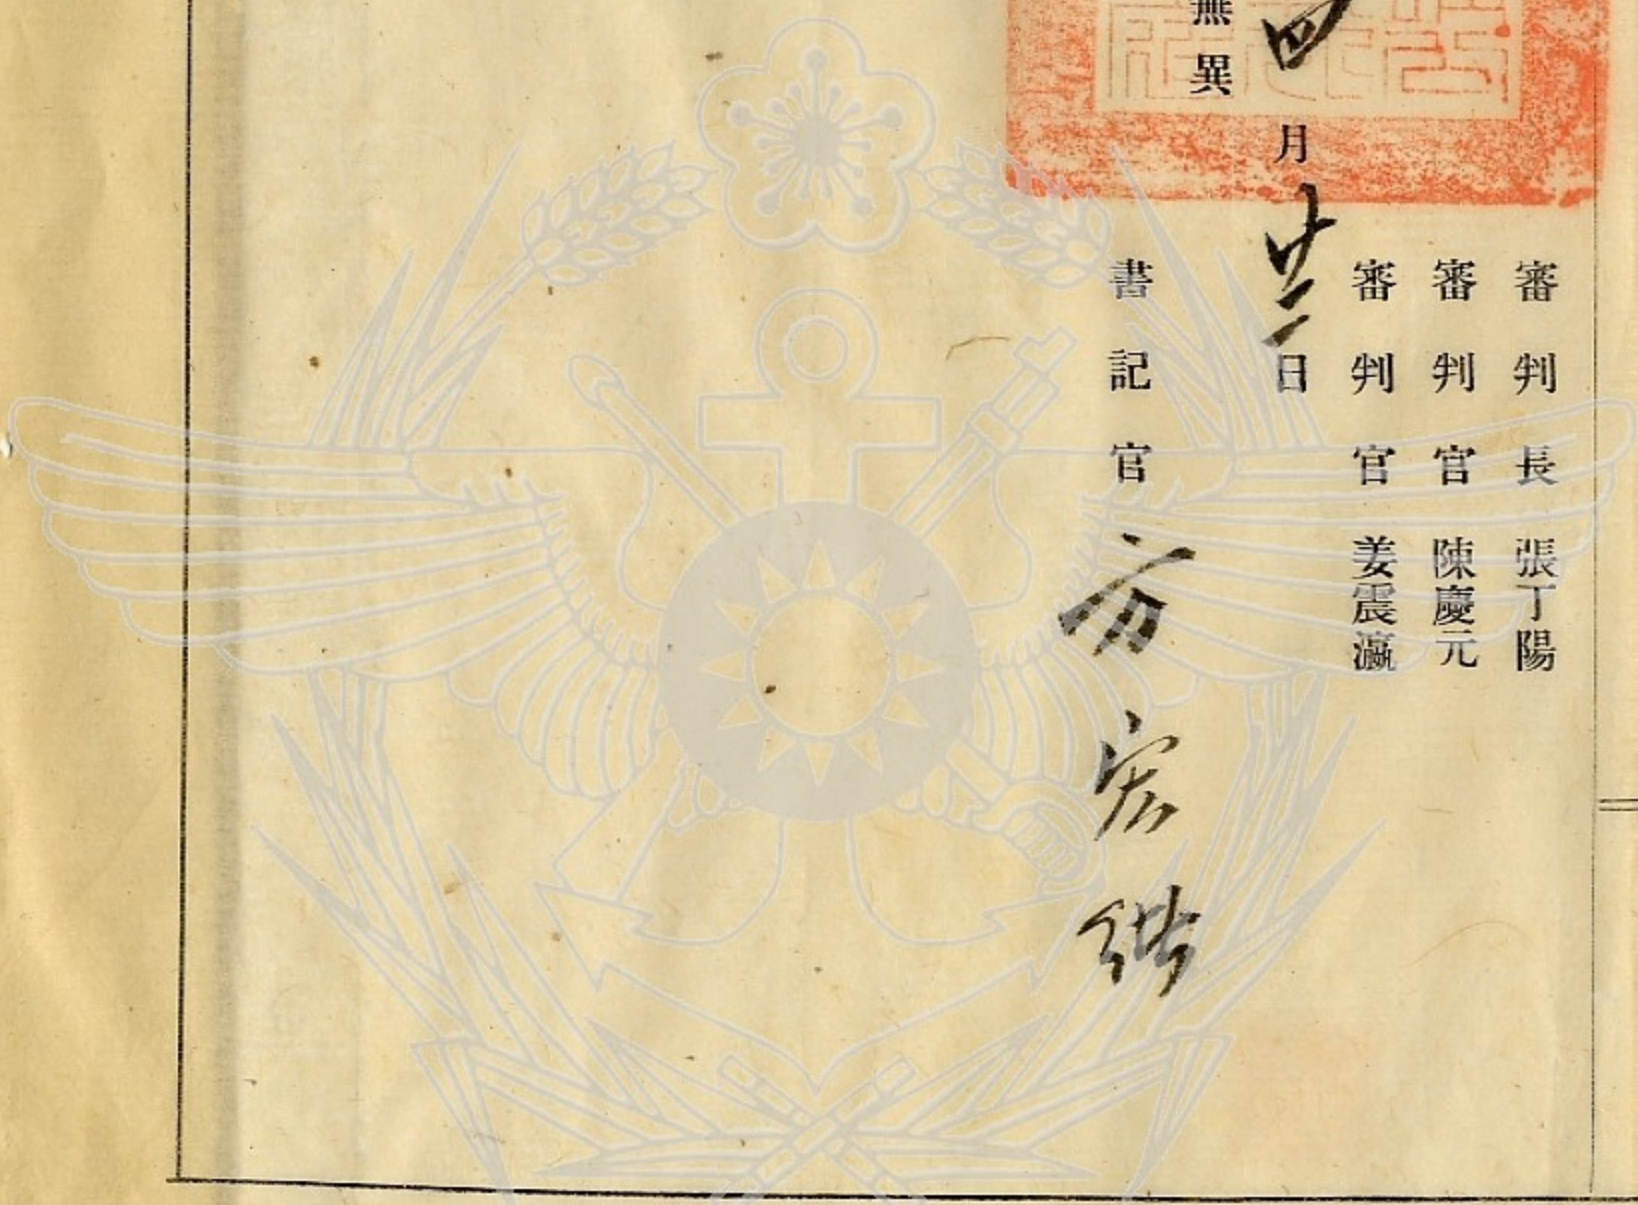 審判長 張丁陽
審判官 陳慶元
審判官 姜震瀛
四月廿二日
無異
書記官 方宏